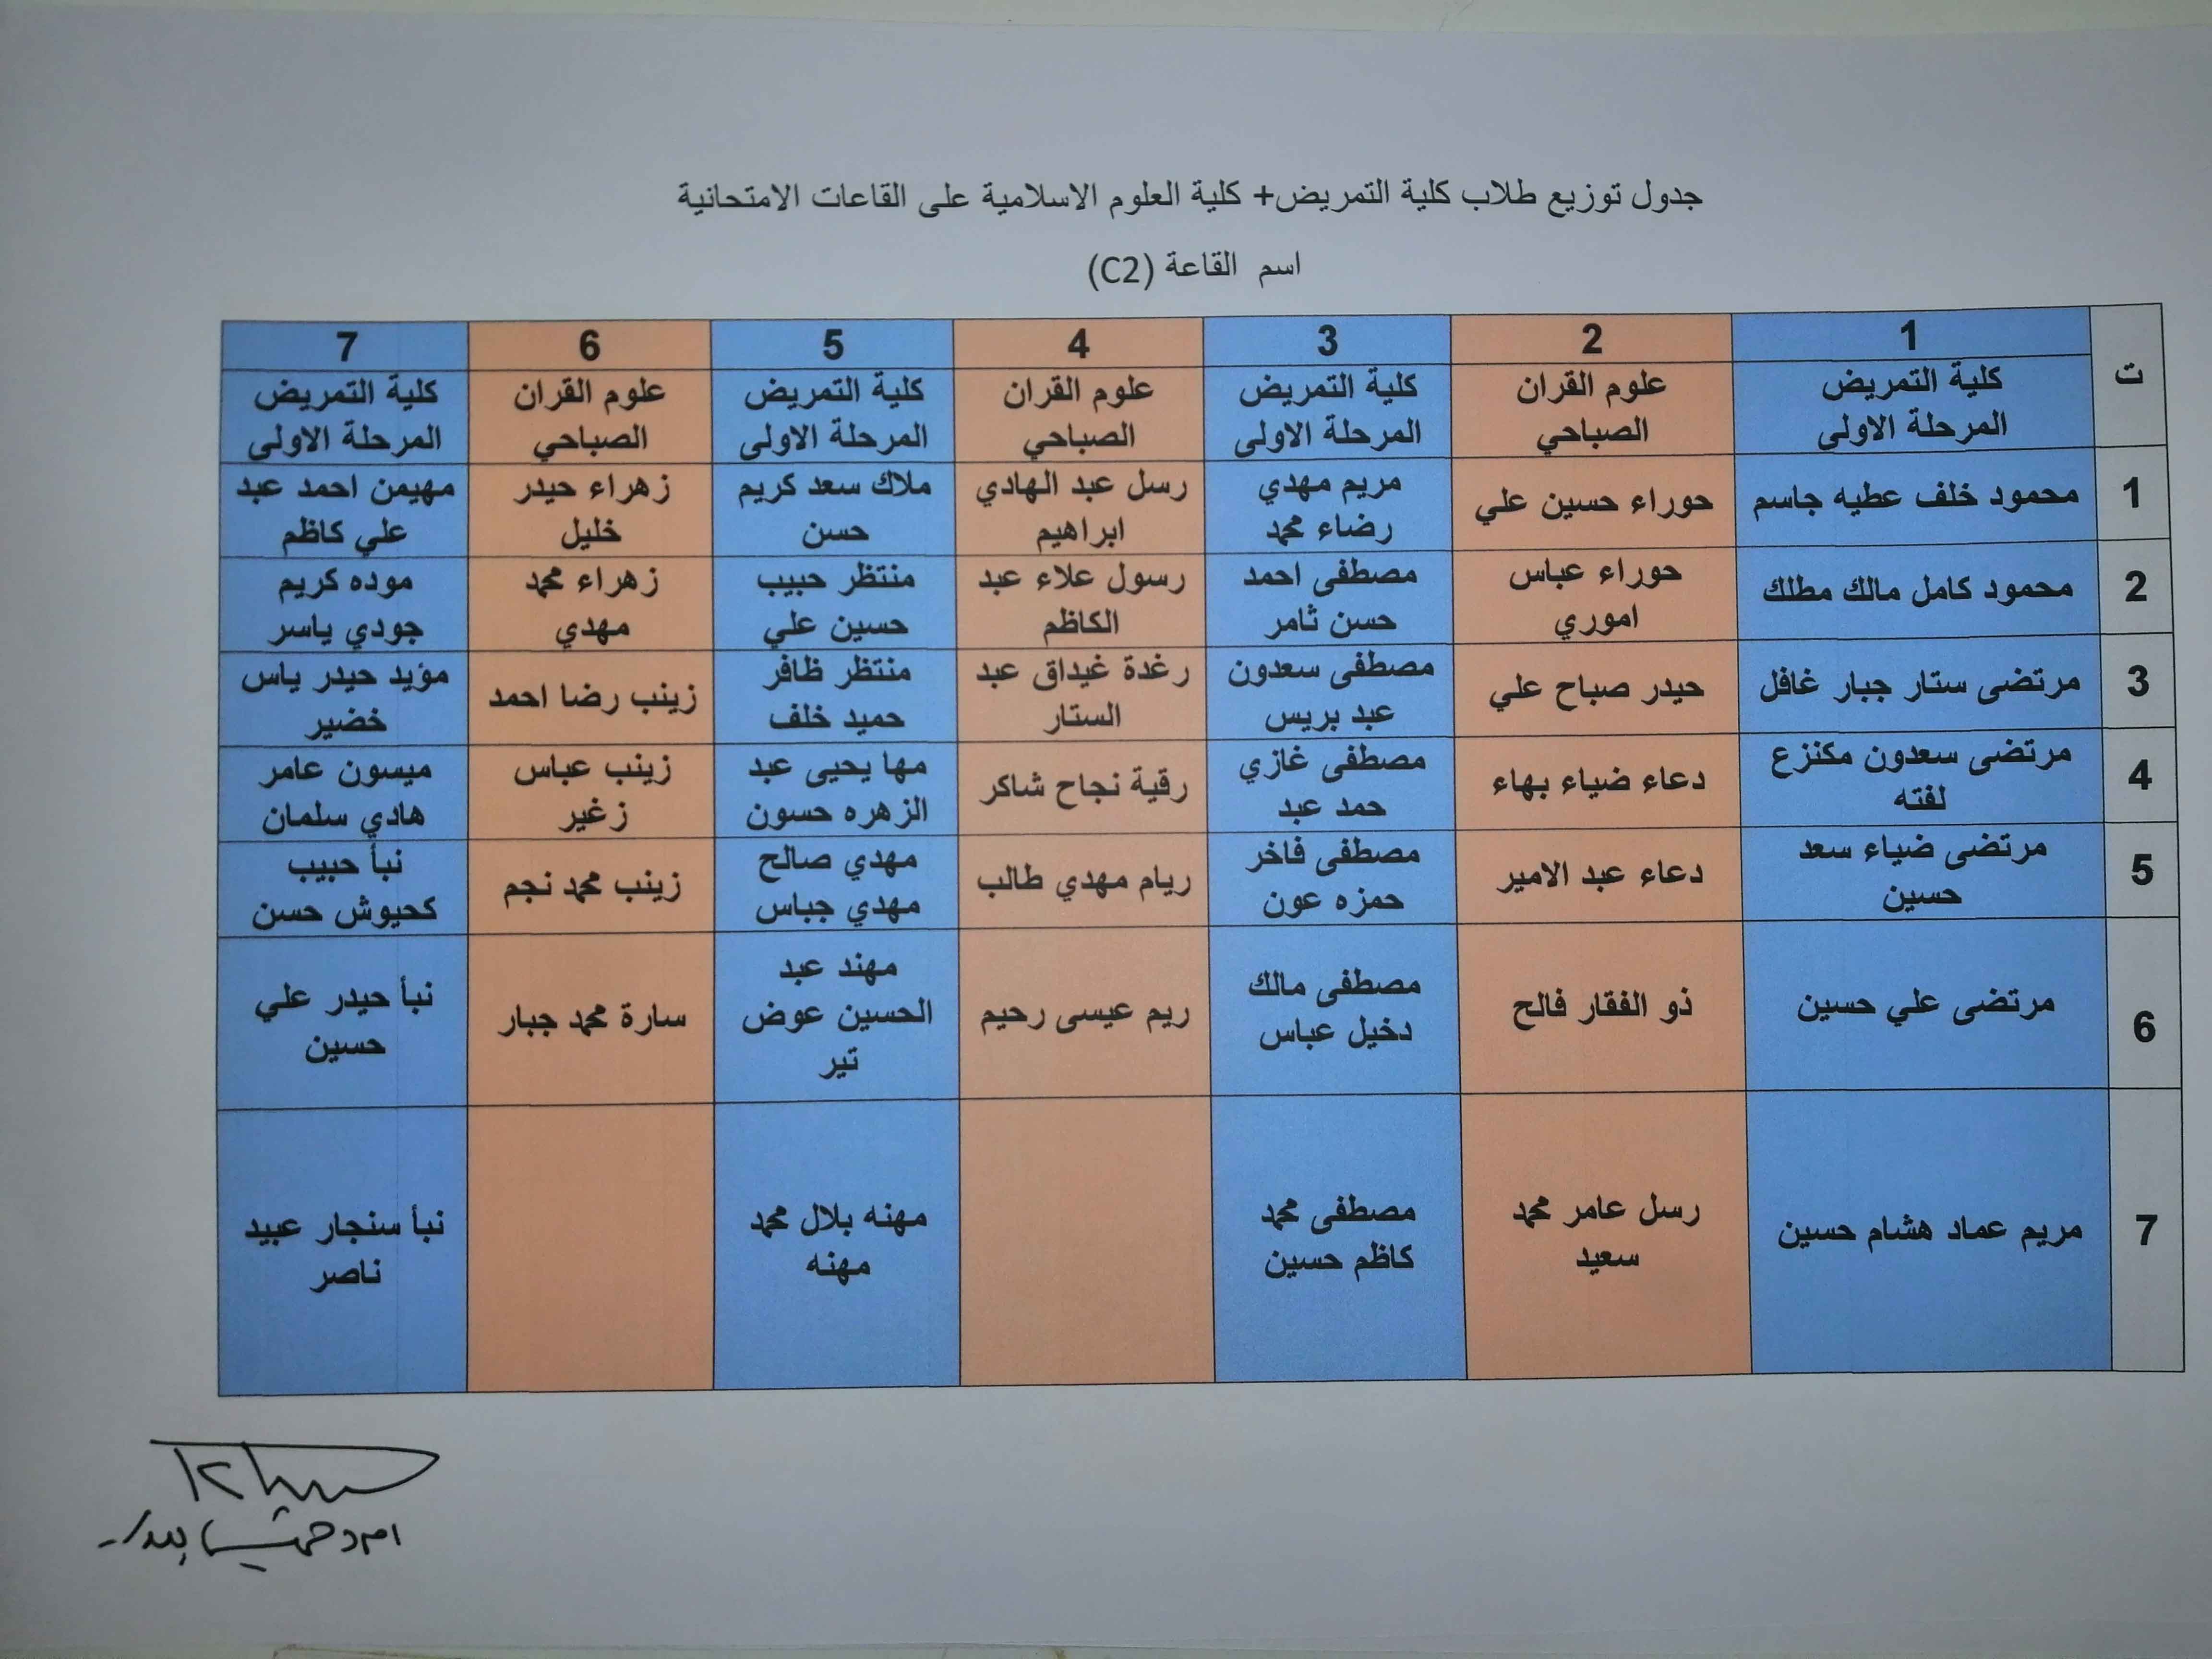 جدول توزيع طلاب كلية التمريض+ كلية العلوم الاسلامية على القاعات الامتحانية
اسم القاعة (C2)
ت 1 2 3 4 5 6 7
كلية التمريض علوم القران كلية التمريض علوم القران كلية التمريض علوم القران كلية التمريض
المرحلة الاولى الصباحي المرحلة الاولى الصباحي المرحلة الاولى الصباحي المرحلة الاولى
1
محمود خلف عطيه جاسم
حوراء حسين علي
مريم مهدي
رضاء محمد
رسل عبد الهادي
ابراهيم
ملاك سعد كريم
حسن
زهراء حيدر
خليل
مهيمن احمد عبد
علي كاظم
2
محمود كامل مالك مطلك
حوراء عباس
اموري
مصطفى احمد
حسن ثامر
رسول علاء عبد
الكاظم
منتظر حبيب
حسين علي
زهراء محمد
مهدي
موده كريم
جودي ياسر
3
مرتضى ستار جبار غافل
حيدر صباح علي
مصطفى سعدون
عبد بريس
رغدة غيداق عبد
الستار
منتظر ظافر
حميد خلف
زينب رضا احمد
مؤيد حيدر ياس
خضير
4
مرتضى سعدون مكنزع
لفته
دعاء ضياء بهاء
مصطفى غازي
حمد عبد
رقية نجاح شاكر
مها يحيى عبد
الزهره حسون
زينب عباس
زغير
ميسون عامر
هادي سلمان
5
مرتضى ضياء سعد
حسين
دعاء عبد الامير
مصطفى فاخر
حمزه عون
ريام مهدي طالب
مهدي صالح
مهدي جباس
زينب محمد نجم
نبأ حبيب
كحيوش حسن
6
مرتضى علي حسين
ذو الفقار فالح
مصطفى مالك
دخيل عباس
ريم عيسى رحيم
مهند عبد
الحسين عوض
تير
سارة محمد جبار
نبأ حيدر علي
حسين
7
مريم عماد هشام حسين
رسل عامر محمد
سعيد
مصطفى محمد
كاظم حسين
مهنه بلال محمد
مهنه
نبأ سنجار عبيد
ناصر